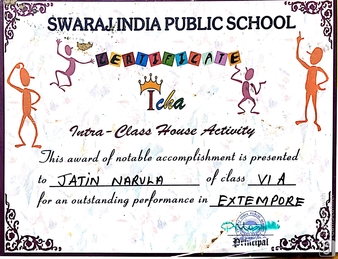 SWARAJ INDIA PUBLIC SCHOOL
CERTIFICATE
Icka
Intra-Class House Activity
This award of notable accomplishment is presented
to JATIN NARULA of class VI A
for an outstanding performance in EXTEMPORE
Principal